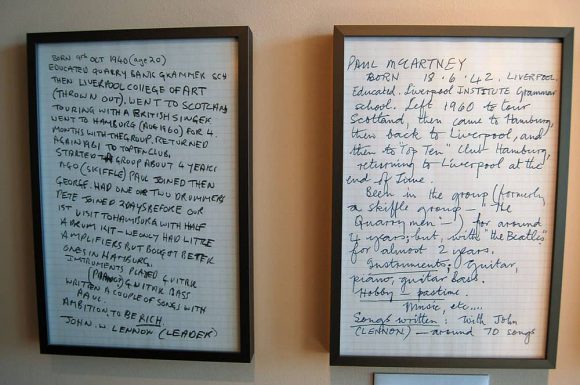 BORN 9TH OCT 1940 (age 20)
EDUCATED QUARRY BANK GRAMMER SCH
THEN LIVERPOOL COLLEGE OF ART
(THROWN OUT). WENT TO SCOTLAND
TOURING WITH A BRITISH SINGER
WENT TO HAMBURG (AUG 1960) FOR 4.
MONTHS WITH THE GROUP. RETURNED
AGAIN TO TOPTEN CLUB,
STARTED GROUP ABOUT 4 YEARS
AGO (SKIFFLE) PAUL JOINED THEN
GEORGE. HAD ONE OR TWO DRUMMERS
PETE JOINED 2 DAYS BEFORE OUR
1ST VISIT TO HAMBURG WITH HALF
A DRUM KIT - WE ONLY HAD LITTLE
AMPLIFIERS BUT BOUGHT BETTER
ONES IN HAMBURG.
INSTRUMENTS PLAYED GUITAR
(PIANO) GUITAR BASS
WRITTEN A COUPLE OF SONGS WITH
PAUL.
AMBITION, TO BE RICH.
JOHN. W. LENNON (LEADER)
PAUL McCARTNEY
BORN 18.6.42. LIVERPOOL.
Educated. Liverpool INSTITUTE Grammar
school. Left 1960 to tour
Scotland, then came to Hamburg,
then back to Liverpool, and
then to "Top Ten" Club Hamburg,
returning to Liverpool at the
end of June.
Been in the group (formerly
a skiffle group - "The
Quarry men" -) for around
4 years; but, with "the Beatles"
for almost 2 years.
Instruments; Guitar,
piano, guitar bass.
Hobby - pastime.
Music, etc....
Songs written: with John
(LENNON) - around 70 songs